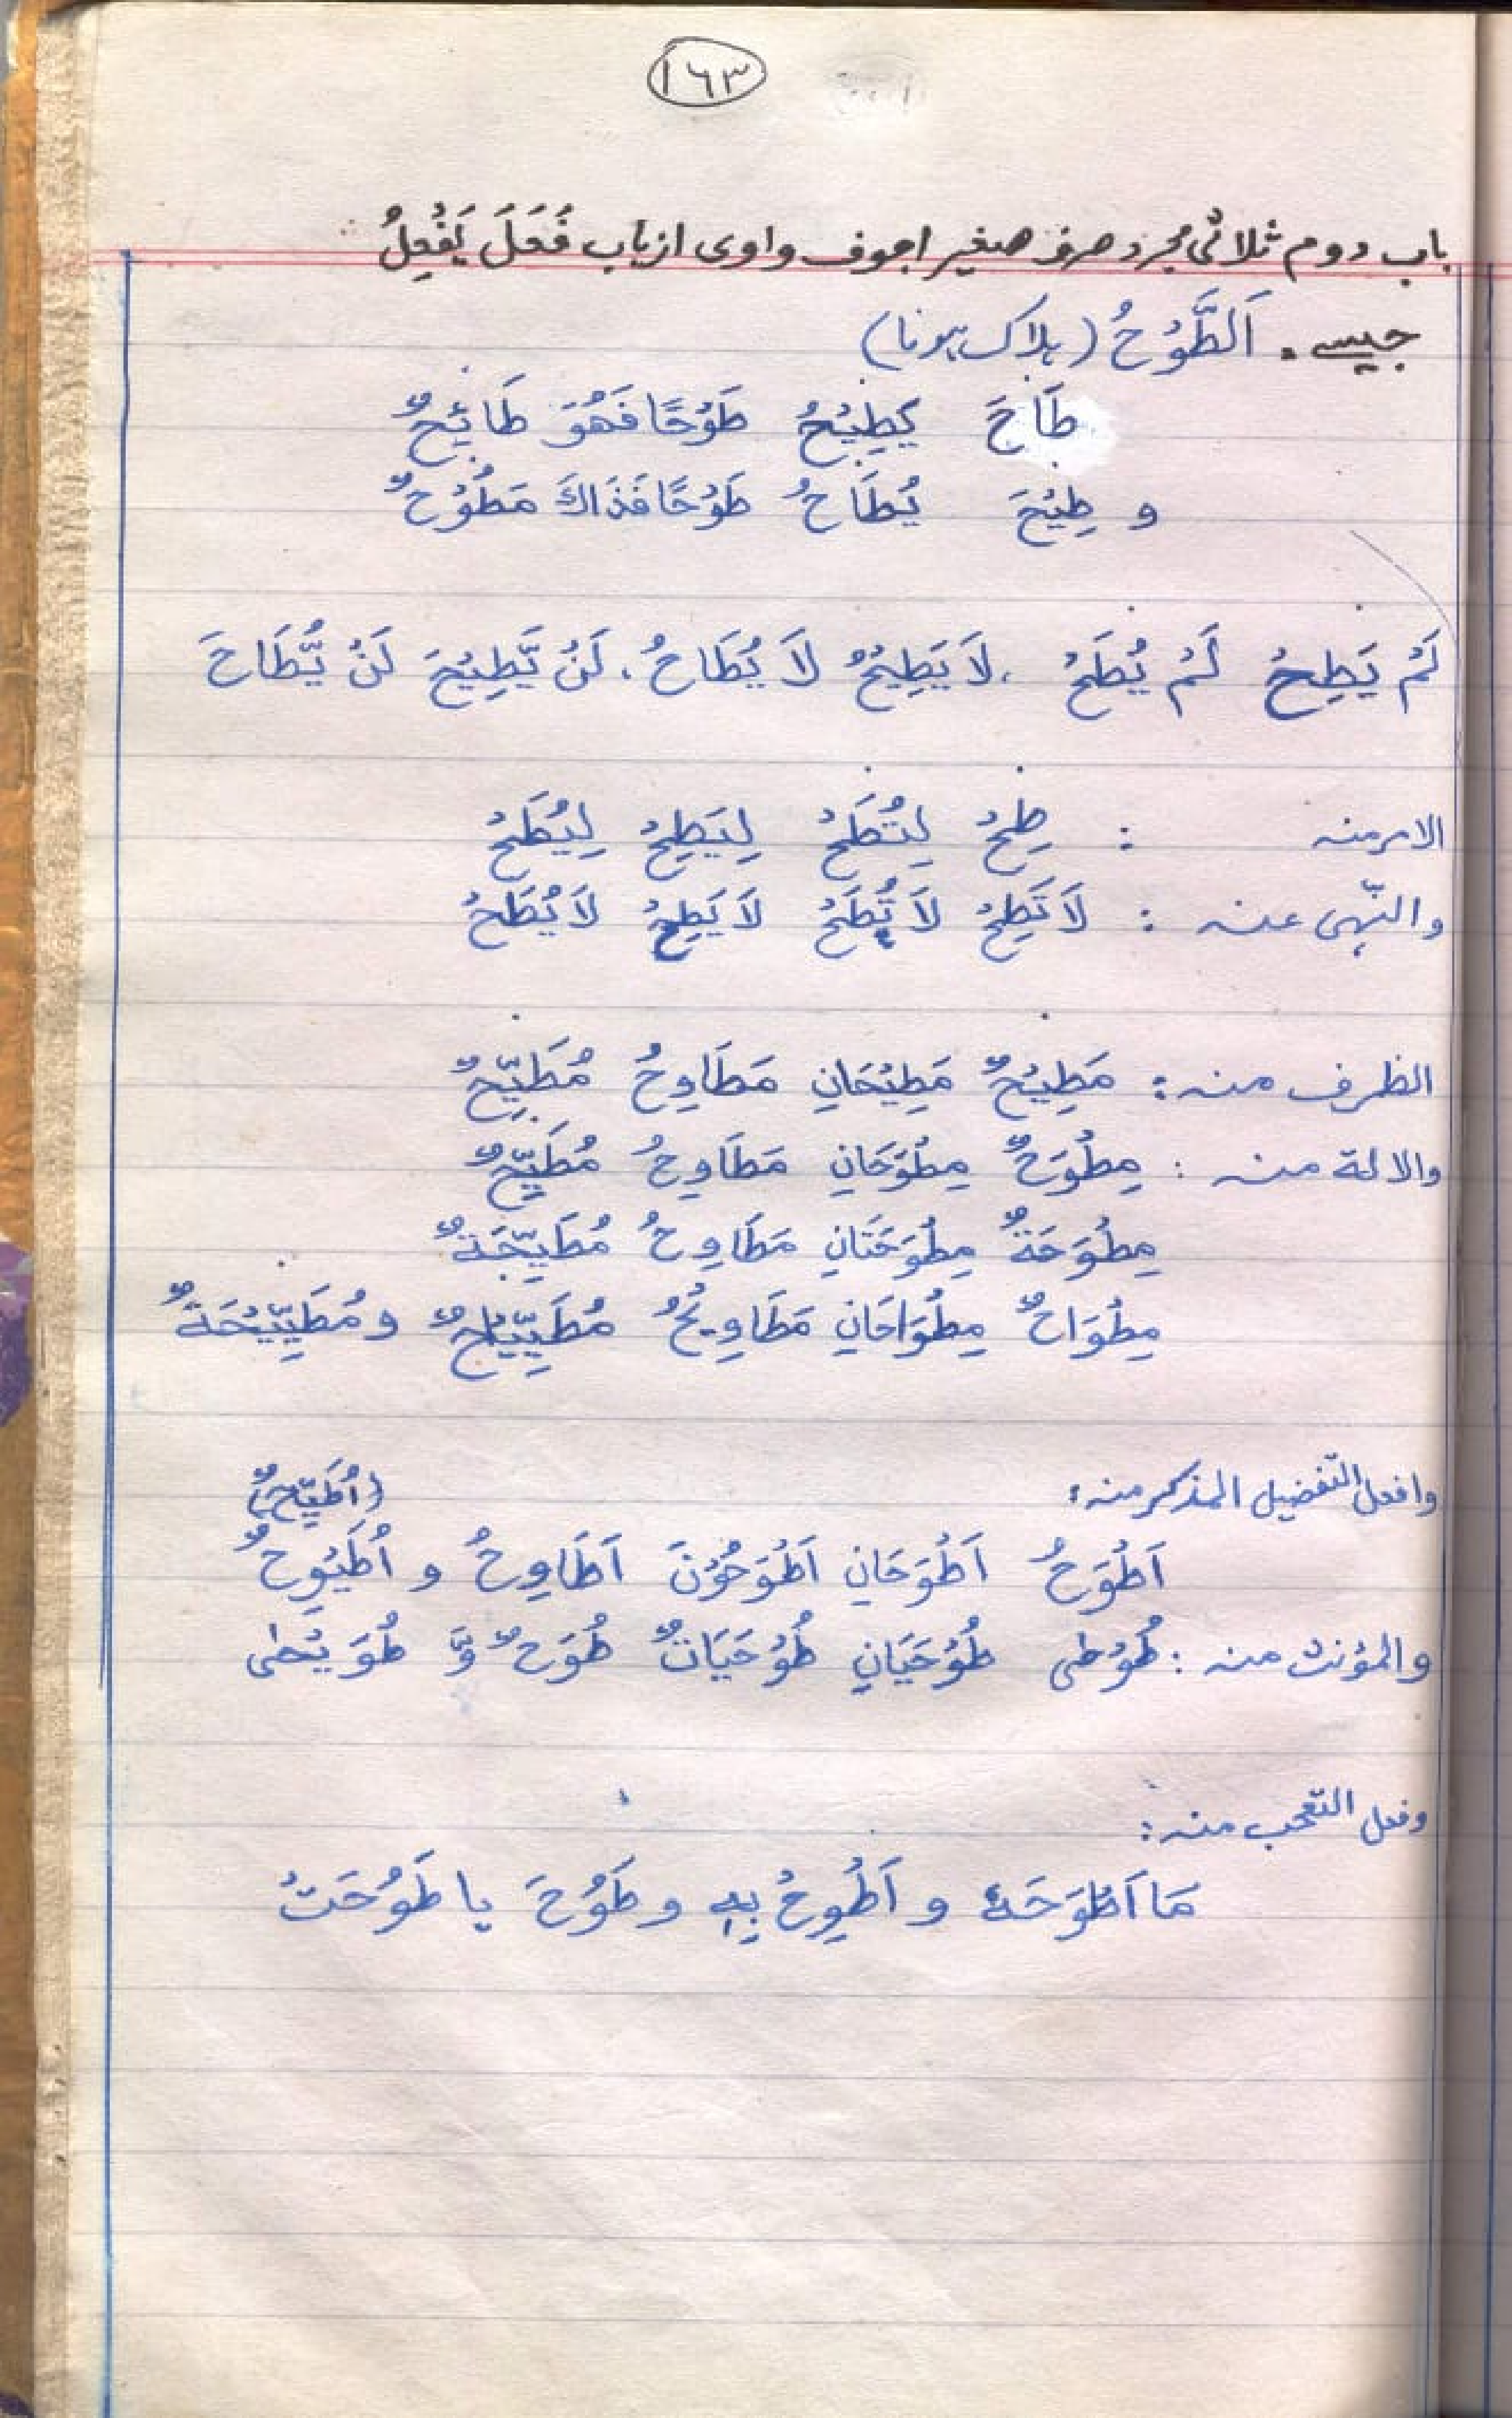 ١٦٣
باب دوم ثلاثی مجرد صرف صغیر اجوف واوی از باب فَعَلَ یَفْعِلُ
جیسے . اَلطَّوْحُ (ہلاک ہونا)
طَاحَ یَطِیْحُ طَوْحًا فَهُوَ طَائِحٌ
و طِیْحَ یُطَاحُ طَوْحًا فَذَاكَ مَطُوْحٌ
لَمْ یَطِحْ لَمْ یُطَحْ ، لَا یَطِیْحُ لَا یُطَاحُ ، لَنْ یَّطِیْحَ لَنْ یُّطَاحَ
الامر منه : طِحْ لِتُطَحْ لِیَطِحْ لِیُطَحْ
والنّهی عنه : لَا تَطِحْ لَا تُطَحْ لَا یَطِحْ لَا یُطَحْ
الظرف منه : مَطِیْحٌ مَطِیْحَانِ مَطَاوِحُ مُطَیِّحٌ
والالة منه : مِطْوَحٌ مِطْوَحَانِ مَطَاوِحُ مُطَیِّحٌ
مِطْوَحَةٌ مِطْوَحَتَانِ مَطَاوِحُ مُطَیِّحَةٌ
مِطْوَاحٌ مِطْوَاحَانِ مَطَاوِیْحُ مُطَیِّیْحٌ و مُطَیِّیْحَةٌ
وافعل التّفضیل المذکر منه : (اُطَیِّحٌ)
اَطْوَحُ اَطْوَحَانِ اَطْوَحُوْنَ اَطَاوِحُ و اُطَیْوِحٌ
والمؤنث منه : طُوْحٰی طُوْحَیَانِ طُوْحَیَاتٌ طُوَحٌ وَّ طُوَیْحٰی
وفعل التّعجب منه :
مَا اَطْوَحَهٗ و اَطْوِحْ بِهٖ و طَوُحَ یا طَوُحَتْ